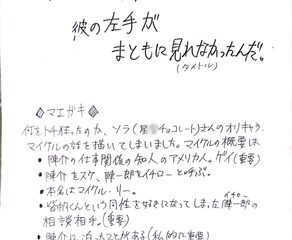 彼の左手が
まともに見れなかったんだ。
(タイトル)
◇マエガキ◇
何をトチ狂ったのか、ソラ(星 チョコレート)さんのオリキャラ、
マイケルの話を描いてしまいました。マイケルの概要は
• 陳介の仕事関係の知人のアメリカ人。ゲイ(重要)
• 陳介をスケ、陳一郎をイチローと呼ぶ。
• 本名はマイケル・リー。
くんという同性を好きになってしまった陳一郎の
イチロー
相談相手。(重要)
に迫ったことがある(私的に重要)